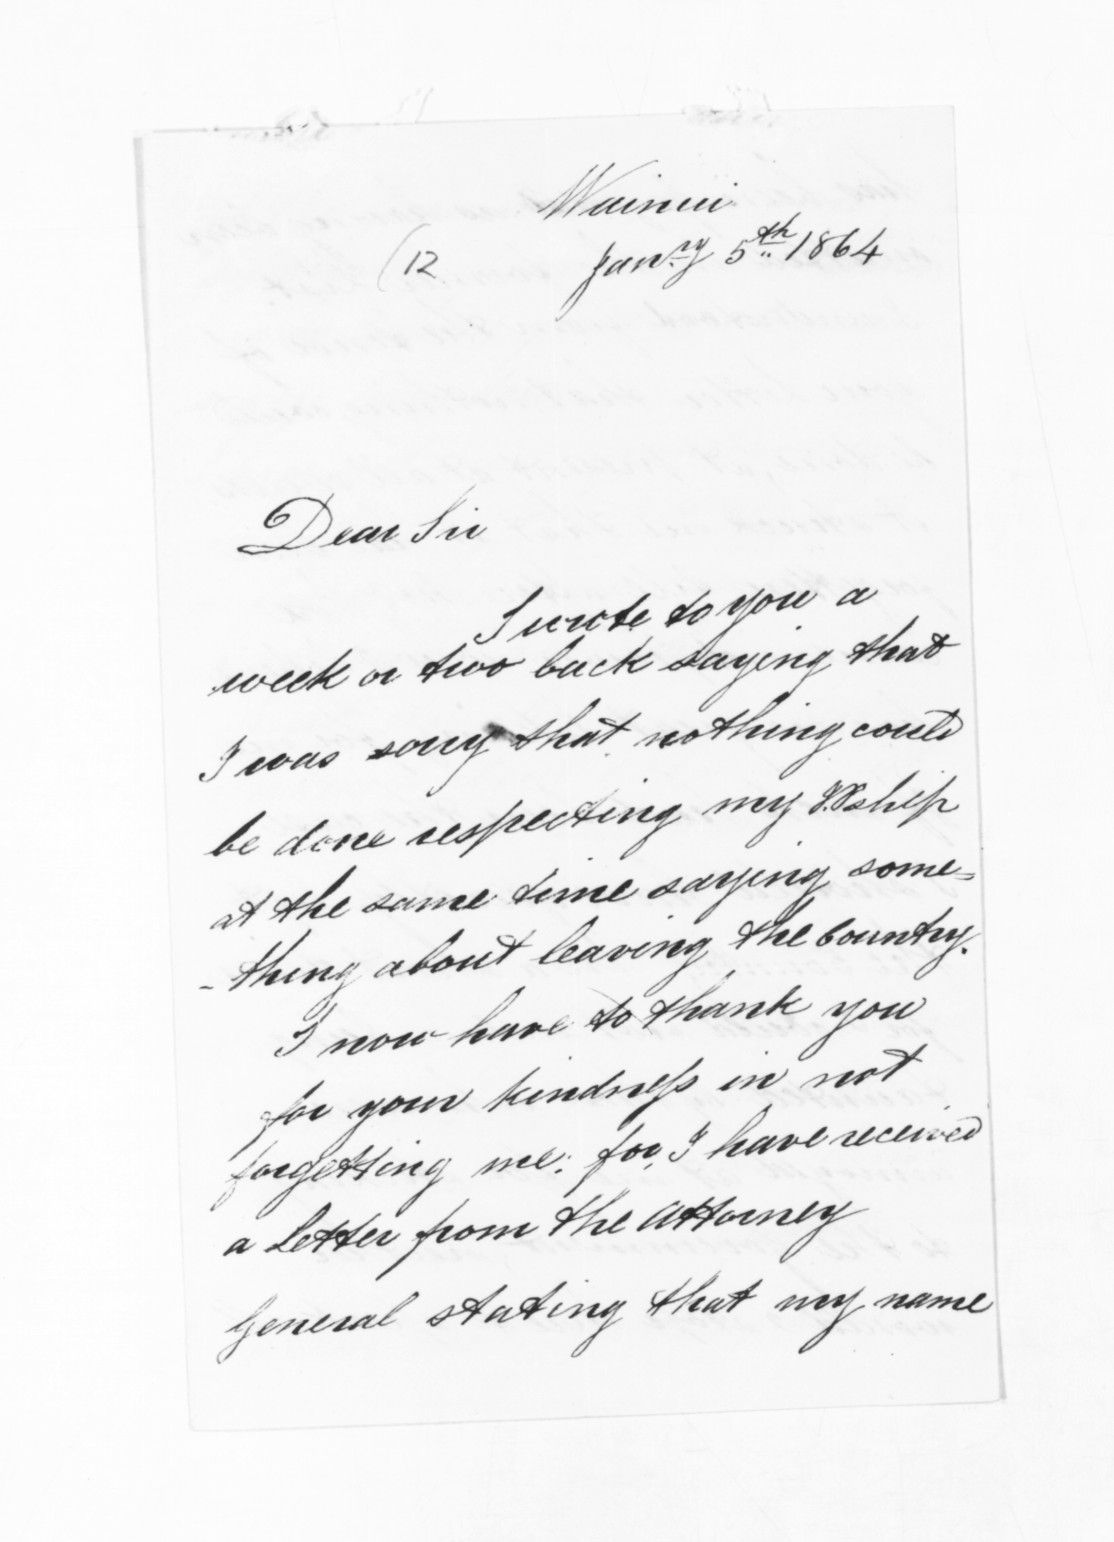 Wainui
(12
Jan.ry 5th 1864
Dear Sir
I wrote to you a
week or two back saying that
I was sorry that nothing could
be done respecting my JPship
at the same time saying some=
-thing about leaving the Country.
I now have to thank you
for your kindness in not
forgetting me: for, I have received
a Letter from the Attorney
General stating that my name